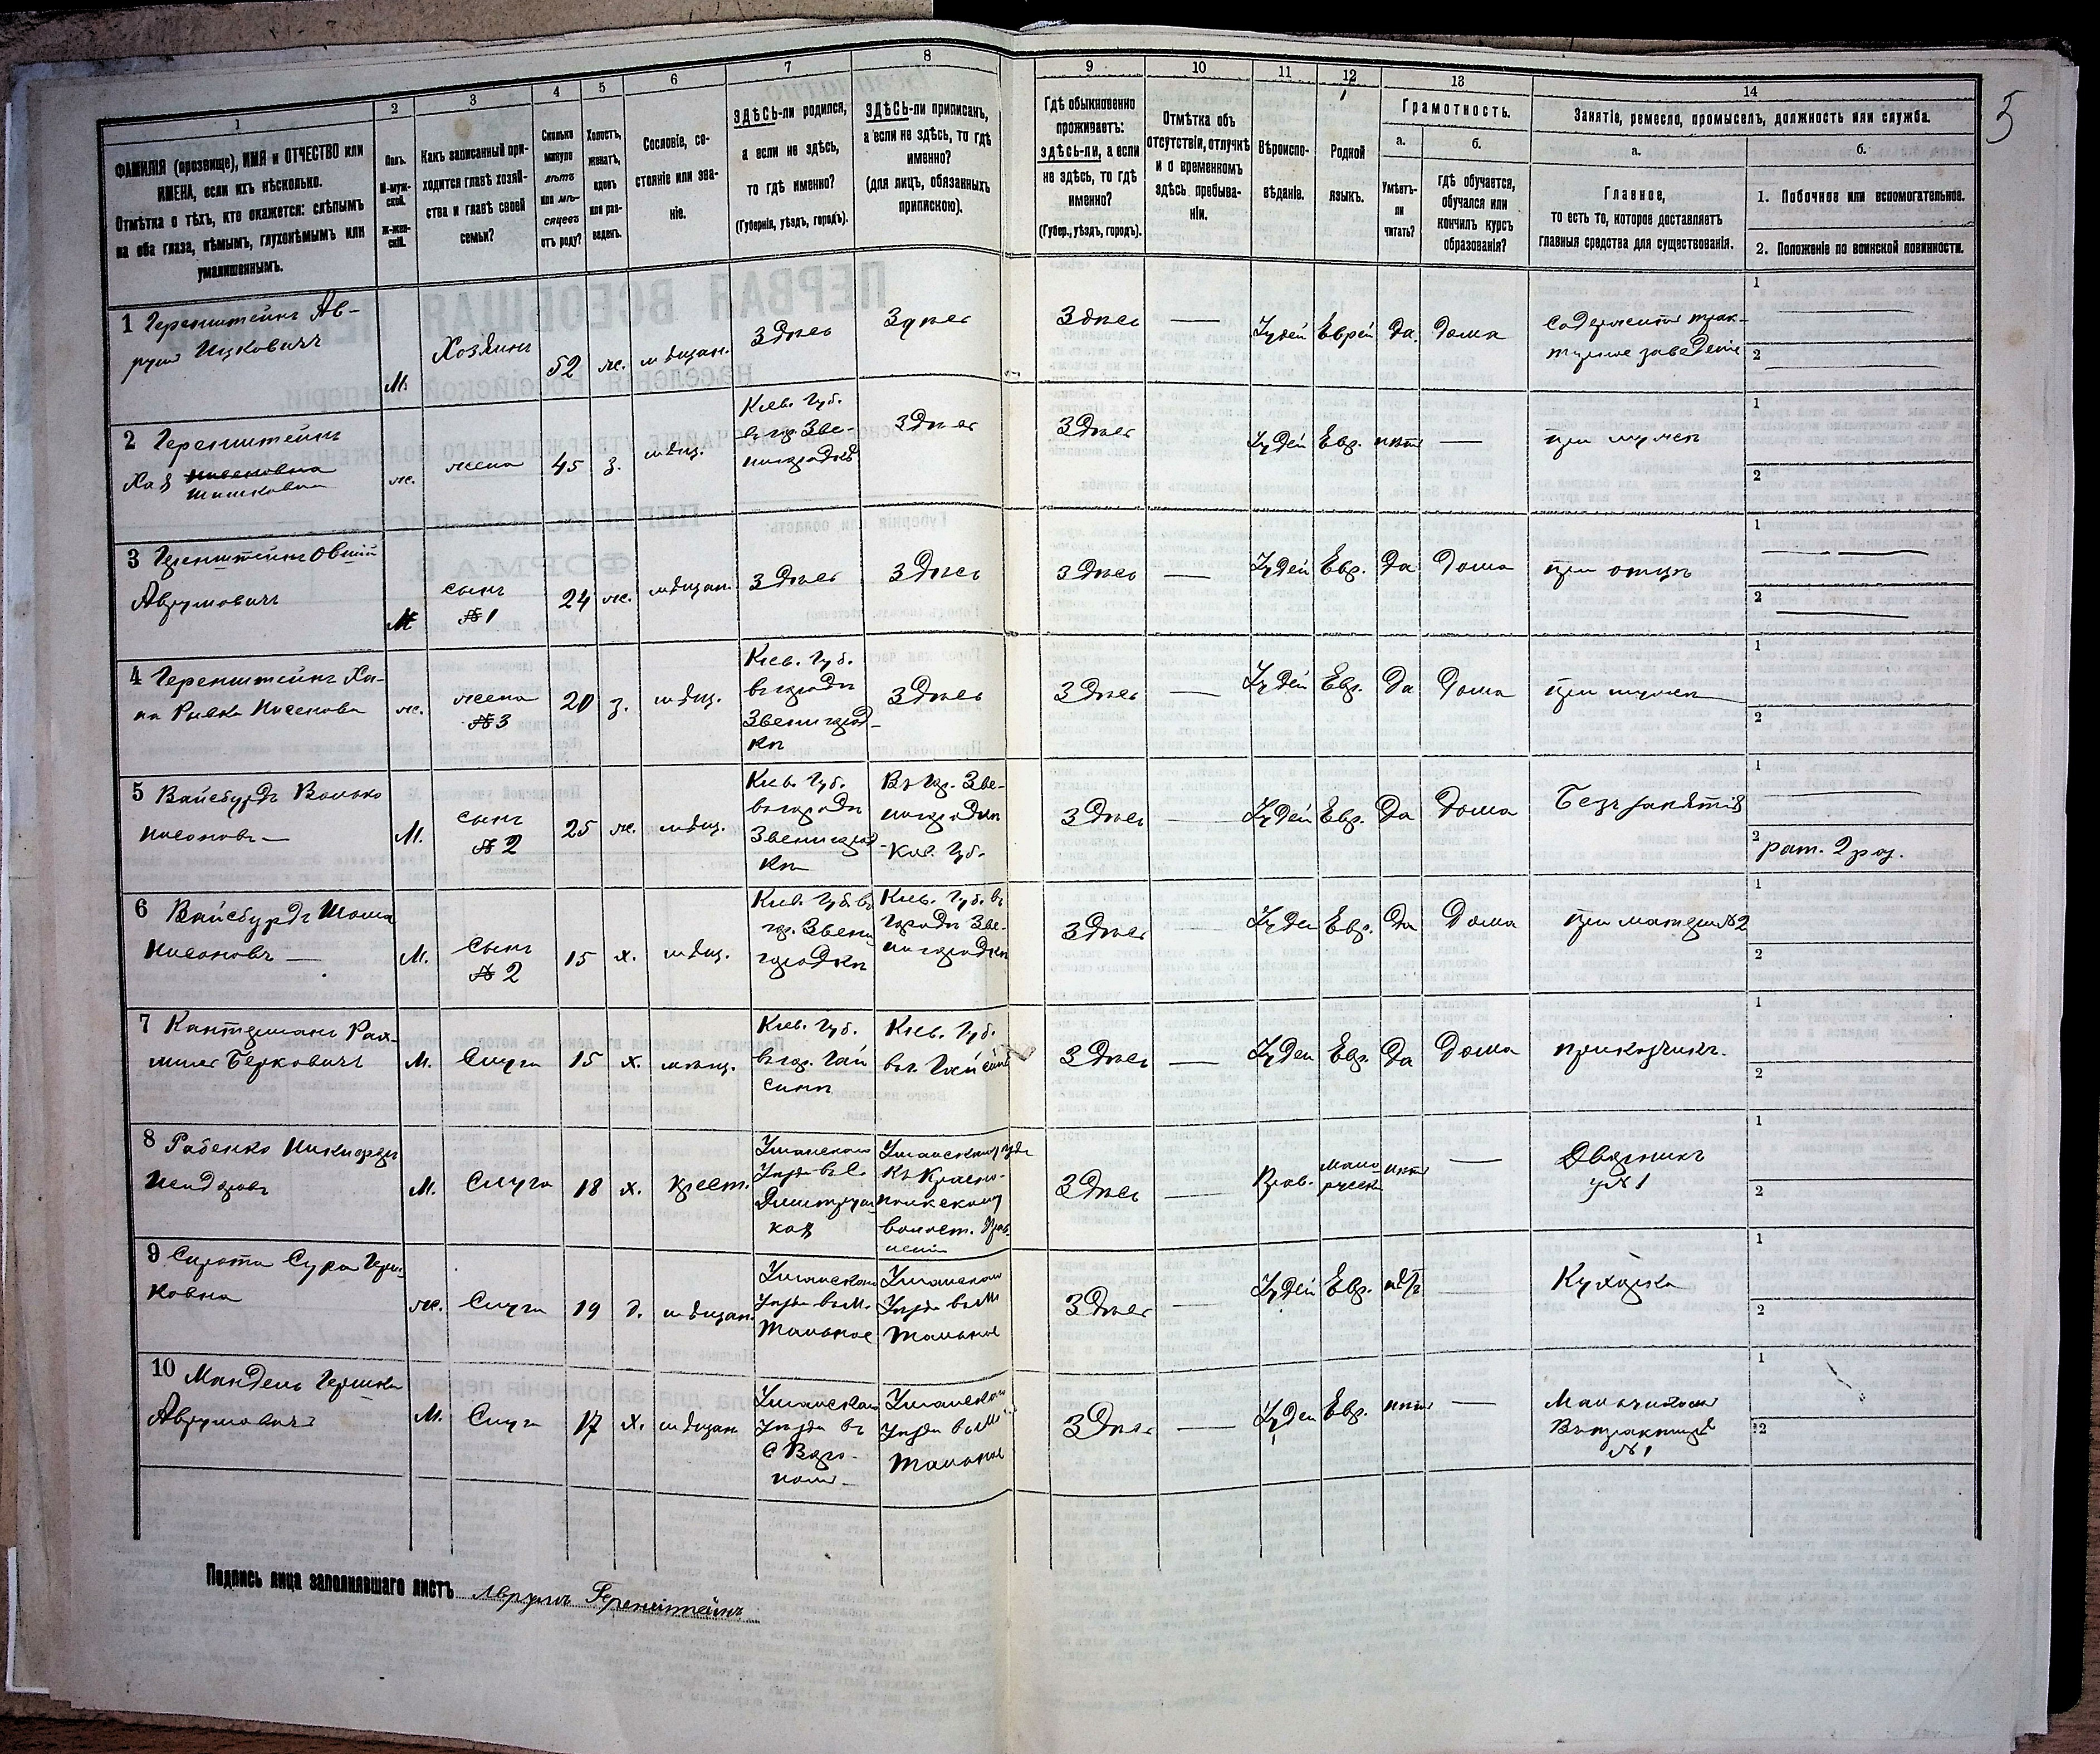 1
ФАМИЛІЯ (прозвище), ИМЯ и ОТЧЕСТВО или
ИМЕНА, если ихъ нѣсколько.
Отмѣтка о тѣхъ, кто окажется: слѣпымъ
на оба глаза, нѣмымъ, глухонѣмымъ или
умалишеннымъ.
2
Полъ.
М-муж-
ской.
Ж-жен-
скій.
3
Какъ записанный при-
ходится главѣ хозяй-
ства и главѣ своей
семьи?
4
Сколько
минуло
лѣтъ
или мѣ-
сяцевъ
отъ роду?
5
Холостъ,
женатъ,
вдовъ
или раз-
веденъ.
6
Сословіе, со-
стояніе или зва-
ніе.
7
ЗДѢСЬ-ли родился,
а если не здѣсь,
то гдѣ именно?
(Губернія, уѣздъ, городъ).
8
ЗДѢСЬ-ли приписанъ,
а если не здѣсь, то гдѣ
именно?
(для лицъ, обязанныхъ
припискою).
9
Гдѣ обыкновенно
проживаетъ:
здѣсь-ли, а если
не здѣсь, то гдѣ
именно?
(Губер., уѣздъ, городъ).
10
Отмѣтка объ
отсутствіи, отлучкѣ
и о временномъ
здѣсь пребыва-
ніи.
11
Вѣроиспо-
вѣданіе.
12
Родной
языкъ.
13
Грамотность.
а.
Умѣетъ-
ли
читать?
б.
гдѣ обучается,
обучался или
кончилъ курсъ
образованія?
14
Занятіе, ремесло, промыселъ, должность или служба.
а.
Главное,
то есть то, которое доставляетъ
главныя средства для существованія.
б.
1. Побочное или вспомогательное.
2. Положеніе по воинской повинности.
5
1 Геренштейнъ Ав-
румъ Ицковичъ
М.
Хозяинъ
52
ж.
мѣщан.
Здѣсь
Здѣсь
Здѣсь
Іудей
Еврей
да
дома
Содержитъ трак-
тирное заведеніе
1
2
2 Геренштейнъ
Хая
ж.
жена
45
з.
мѣщ.
Кіев. Губ.
въ гор. Зве-
нигородкѣ
Здѣсь
Здѣсь
Іудей
Евр.
нѣтъ
при мужѣ
1
2
3 Геренштейнъ Овшій
Аврумовичъ
М
сынъ
№ 1
24
ж.
мѣщан.
Здѣсь
Здѣсь
Здѣсь
Іудей
Евр.
да
дома
при отцѣ
1
2
4 Геренштейнъ Ха-
на Рывка Нисенова
ж.
жена
№ 3
20
з.
мѣщ.
Кіев. Губ.
въ городѣ
Звенигород-
кѣ
Здѣсь
Здѣсь
Іудей
Евр.
да
дома
при мужѣ
1
2
5 Вайсбурдъ Волько
Нисоновъ
М.
сынъ
№ 2
25
ж.
мѣщ.
Кіев. Губ.
въ городѣ
Звенигород-
кѣ
Въ гор. Зве-
нигродкѣ
Кіев. Губ.
Здѣсь
Іудей
Евр.
да
дома
Безъ занятія
1
2
рат. 2 раз.
6 Вайсбурдъ
Нисоновъ
М.
Сынъ
№ 2
15
х.
мѣщ.
Кіев. Губ. въ
гор. Звени
городкѣ
Кіев. Губ. въ
городѣ Зве-
нигородкѣ
Здѣсь
Іудей
Евр.
да
Дома
при матери №2
1
2
7 Кантерманъ Рах-
миль Берковичъ
М.
Слуга
15
х.
мѣщ.
Кіев. Губ.
въ гор. Гай
синѣ
Кіев. Губ.
въ г. Гайсинѣ
Здѣсь
Іудей
Евр.
да
дома
прикащикъ.
1
2
8 Рабенко Никифоръ
М.
Слуга
18
х.
крест.
Уманскаго
Уѣзда въ с.
Дмитруш
кахъ
Уманскаго уѣзда
волост. Прав
леніи
Здѣсь
Прав.
мало
русскій
нѣтъ
Дворникъ
у № 1
1
2
9 Сирота Сура Герш
ковна
ж.
Слуга
19
д.
мѣщан.
Уманскаго
Уѣзда въ м.
Тальное
Уманскаго
Уѣзда въ м
Тальное
Здѣсь
Іудей
Евр.
нѣтъ
Кухарка
1
2
10 Мандель Гершко
Аврумовичъ
М.
Слуга
17
х.
мѣщан
Уманскаго
Уѣзда въ
Уманскаго
Уѣзда въ м
Тальное
Здѣсь
Іудей
Евр.
нѣтъ
Мальчикомъ
Въ трактирѣ
№ 1
1
2
Подпись лица заполнявшаго листъ Аврумъ Геренштейнъ